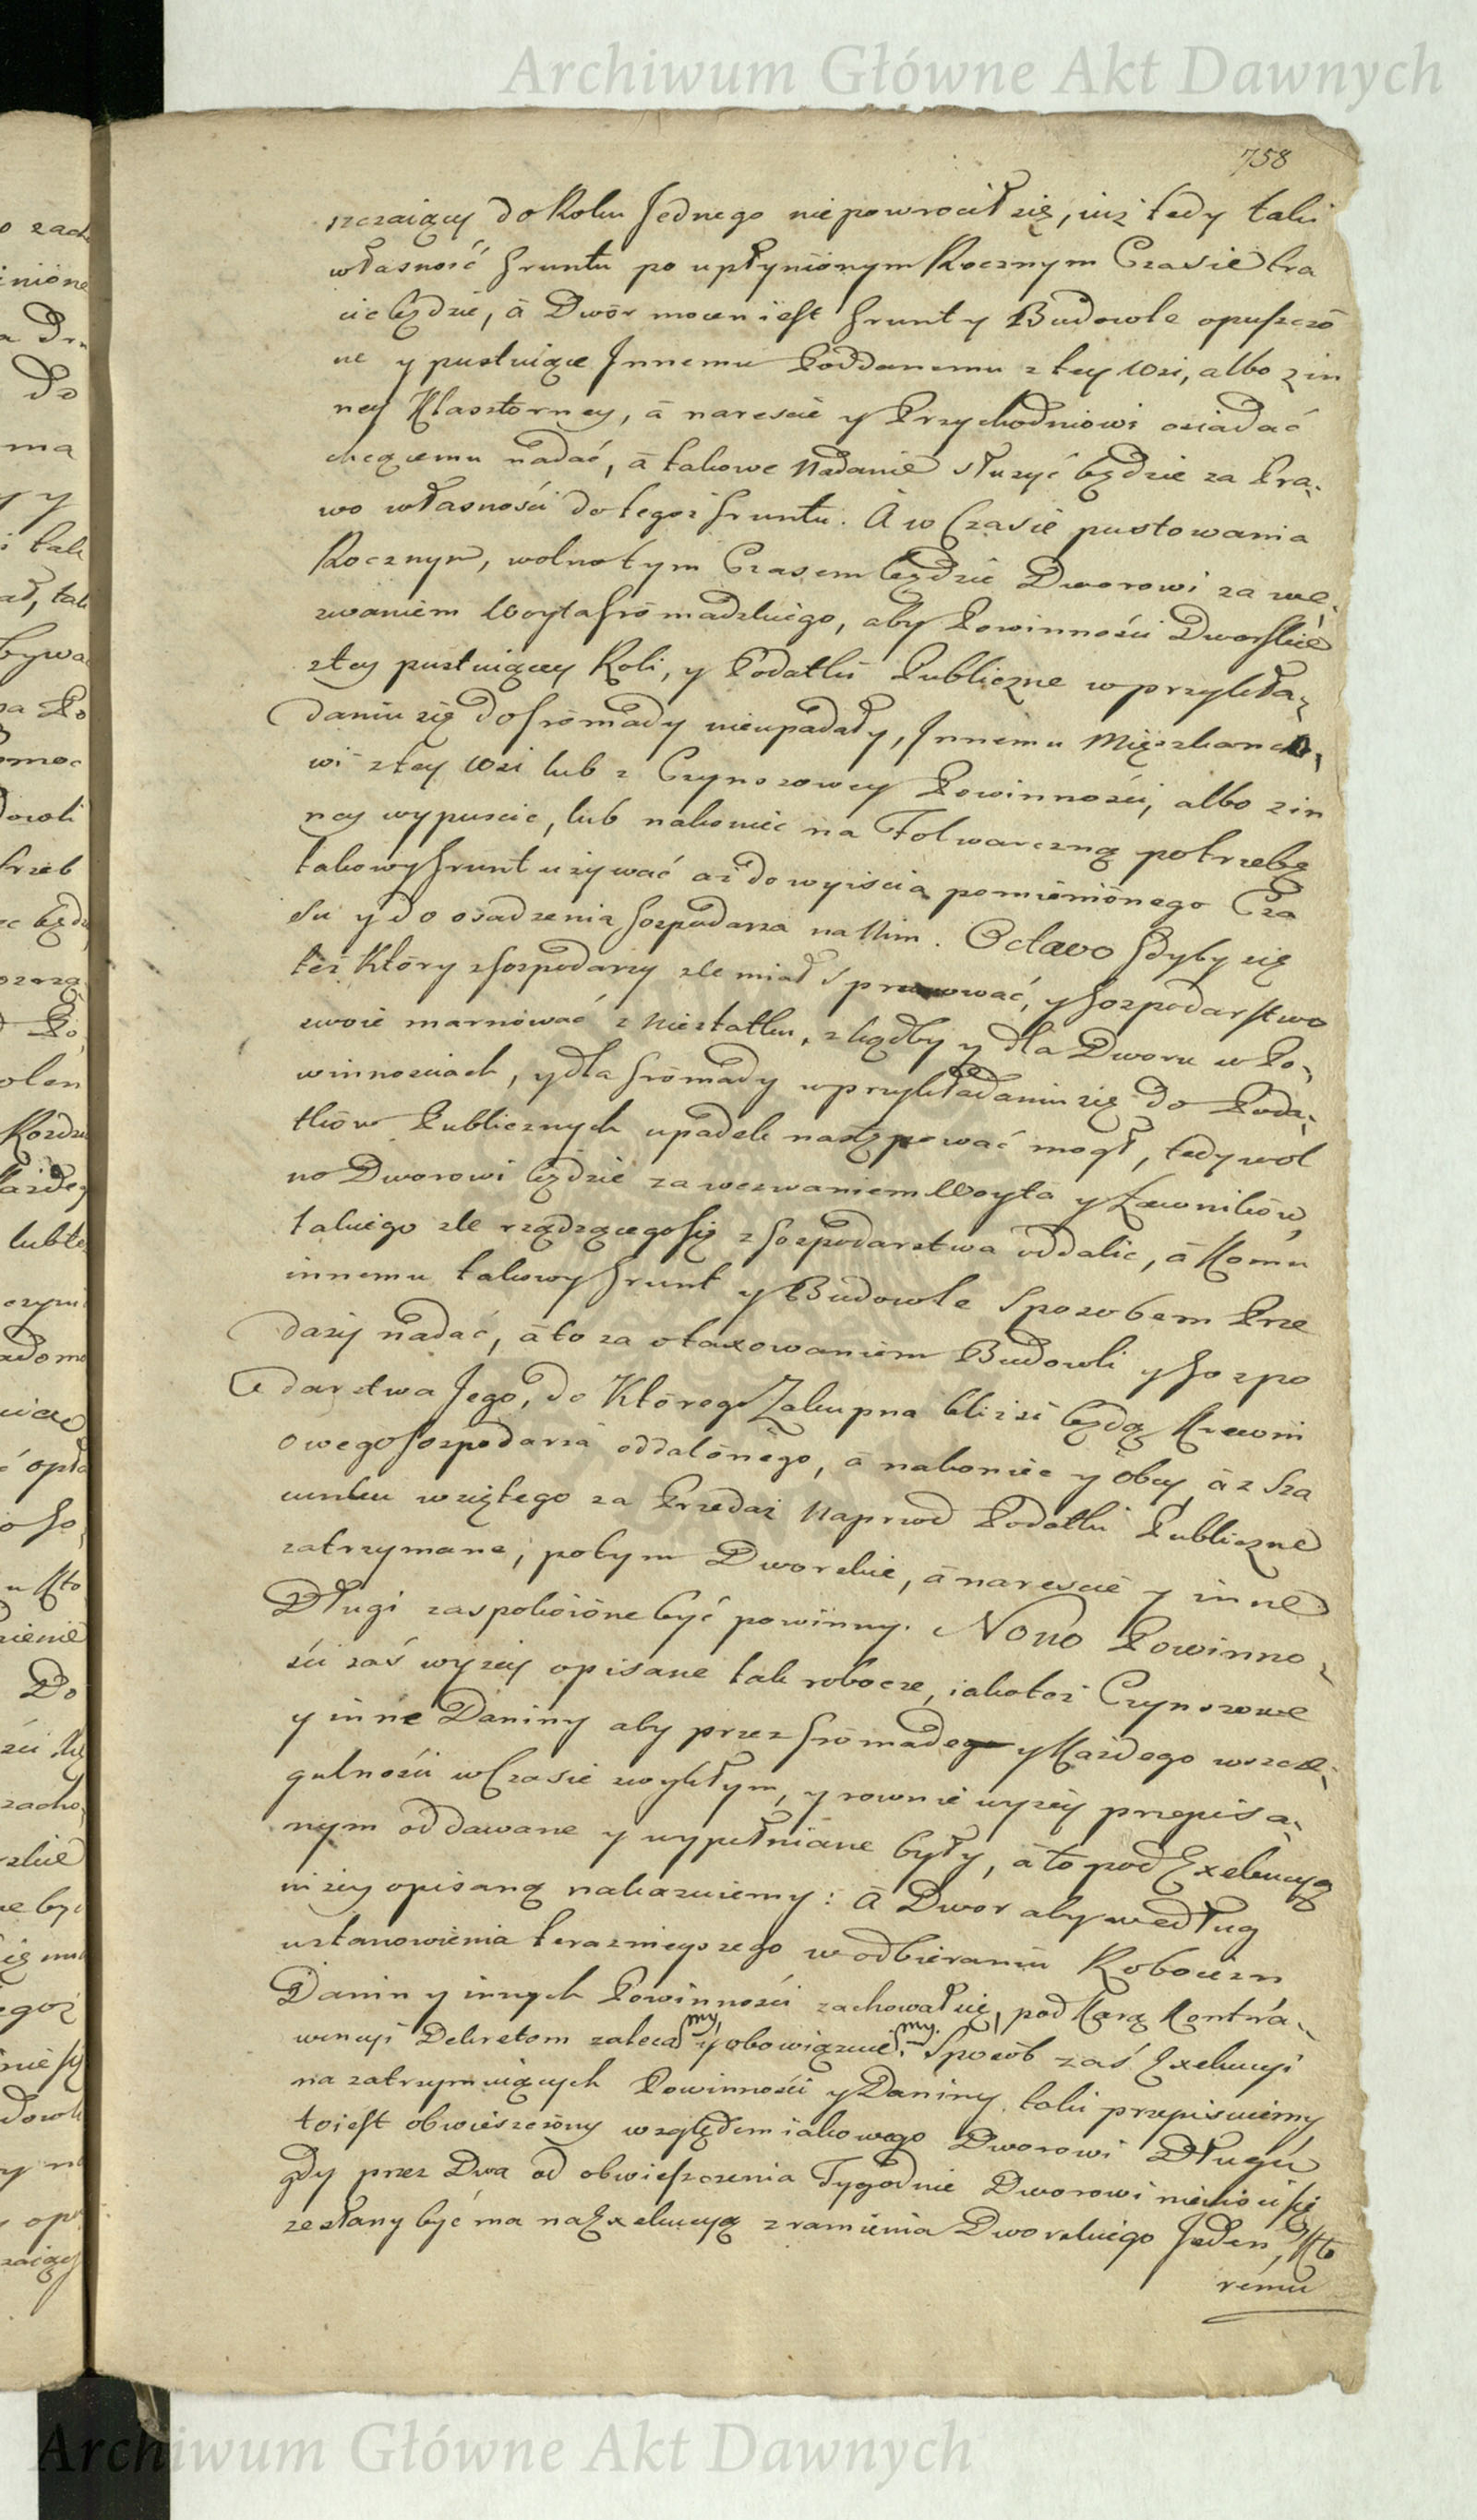 Archiwum Główne Akt Dawnych
758
szczaiący do Roku Jednego niepowrocił się, iuż tedy taki
własność Gruntu po upłynionym Rocznym Czasie tra
cić będzie, á Dwór mocen iest Grunt y Budowle opuszczo
ne y pustuiące Jnnemu Poddanemu z tey Wsi, albo z in
ney Klasztorney, á nareście y Przychodniowi osiadać
chcącemu nádać, á takowe Nadanie służyć będzie za Pra-
wo własności do tegoż Gruntu. A w Czasie pustowania
Rocznym, wolno tym Czasem będzie Dworowi za we-
zwaniem Woyta Gromadzkiego, aby Powinności Dworskie
z tey pustuiącey Roli, y Podatki Publiczne w przykła-
daniu się do Gromady nieupadały, Jnnemu Mięszkanco-
wi z tey Wsi lub z Czynszowey Powinności, albo z in
ney wypuscic, lub nakoniec na Folwarczną potrzebę
takowy Grunt używać aż do wyiscia pomienionego Cza
su y do osadzenia Gospodarza na Nim. Octavo Gdyby się
też Który z Gospodarzy zle miał sprawować, y Gospodarstwo
swoie marnować z Niestatku, zkądby y dla Dworu w Po-
winnosciach, y dla Gromady w przykładaniu się do Poda-
tków Publicznych upadek następować mogł, tedy wol
no Dworowi będzie za wezwaniem Woyta y Ławników,
takiego zle rządzącego się z Gospodarstwa oddalic, á Komu
innemu takowy Grunt y Budowle Sposobem Prze
daży nádać, á to za otaxowaniem Budowli y Gospo
darstwa Jego, do Którego Zakupna bliżsi będą Krewni
owego Gospodarza oddalonego, á nakoniec y obcy á z Sza
cunku wziętego za Przedaż Naprwod Podatki Publiczne
zatrzymane, potym Dworskie, á nareście y inne
Długi zaspokoione być powinny. Nono Powinno-
ści záś wyżey opisane tak robocze, iakoteż Czynszowe
y inne Daniny aby przez Gromadę y Każdego wszcze-
gulności w Czasie zwykłym, y rownie wyżey przepisa-
nym oddawane y wypełniane były, á to pod Exekucyą
niżey opisaną nakazuiemy: A Dwor aby według
ustanowienia terazniejszego w odbieraniu Robocizn
Danin y innych Powinności zachował się, pod Karą Kontra-
wencyi Dekretom zaleca my, y obowiązuie my. Sposób zaś Exekucyi
na zatrzymuiących Powinności y Daniny taki przepisuiemy
to iest obwieszczony względem iakowego Dworowi Długu
gdy przez Dwa od obwieszczenia Tygodnie Dworowi nieuiści się
zesłany być ma na Exekucyą z ramienia Dworskiego Jeden, Kto
remu
Archiwum Główne Akt Dawnych